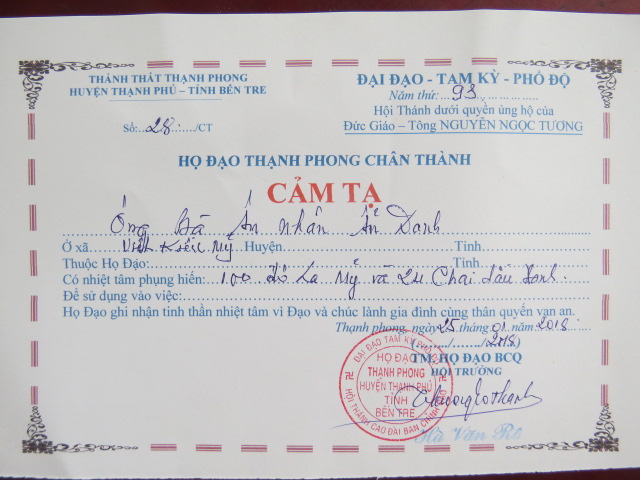 THÁNH THẤT THẠNH PHONG
HUYỆN THẠNH PHÚ – TỈNH BẾN TRE
Số: 28 /CT
ĐẠI ĐẠO - TAM KỲ - PHỔ ĐỘ
Năm thứ: 93
Hội Thánh dưới quyền ủng hộ của
Đức Giáo – Tông NGUYỄN NGỌC TƯƠNG
HỌ ĐẠO THẠNH PHONG CHÂN THÀNH
CẢM TẠ
Ông Bà Ân Nhân Ẩn Danh
Ở xã Việt Kiều Mỹ Huyện: Tỉnh
Thuộc Họ Đạo: Tỉnh
Có nhiệt tâm phụng hiến: 100 đô La Mỹ và 24 Chai Dầu Xanh.
Để sử dụng vào việc:
Họ Đạo ghi nhận tinh thần nhiệt tâm vì Đạo và chúc lành gia đình cùng thân quyến vạn an.
Thạnh phong, ngày 25 tháng 01 năm 2018
(..../....../2018)
TM. HỌ ĐẠO BCQ
HỘI TRƯỞNG
ĐẠI ĐẠO TAM KỲ PHỔ ĐỘ
HỌ ĐẠO
THẠNH PHONG
HUYỆN THẠNH PHÚ
TỈNH
BẾN TRE
HỘI THÁNH CAO ĐÀI BAN CHỈNH ĐẠO
Hà Văn